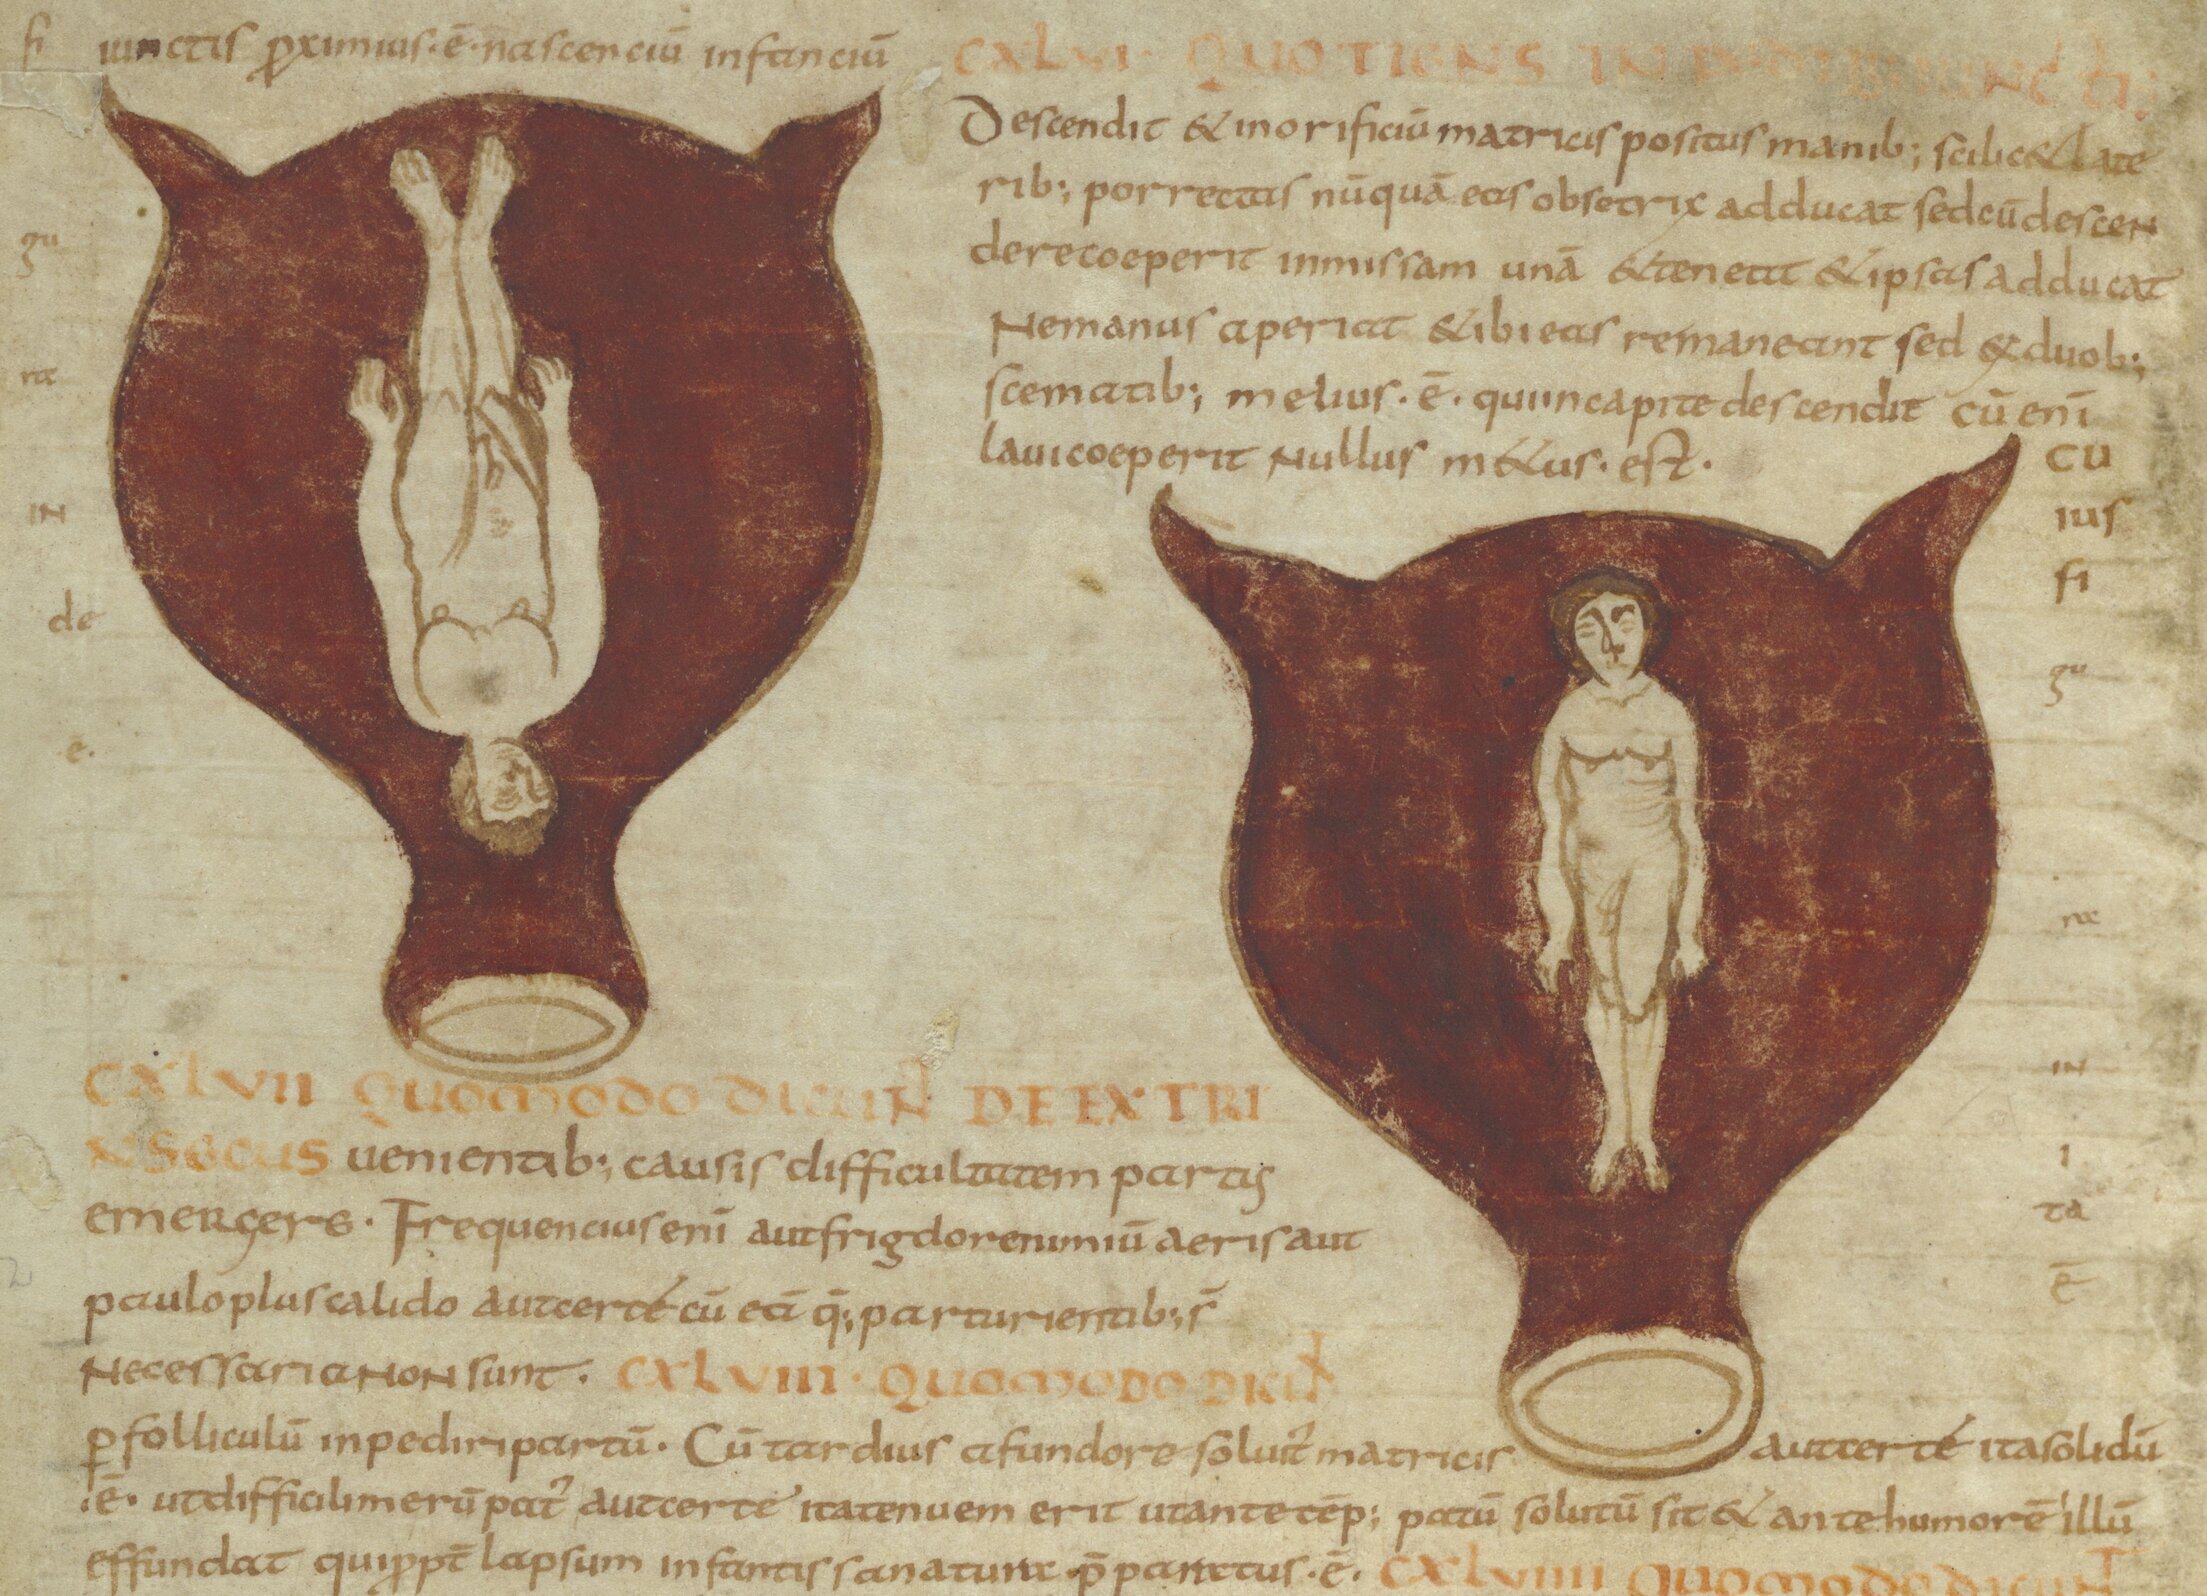 iunctis ꝓximius·ē·nascenciū infanciū
CXLVI· QUOTIENS IN PEDIB; IUNCTIS
Descendit & inorificiū matricis positus manib; scilic& late
rib; porrectas nūquā eas obsetrix adducat sedcū descen
dere coeperit inmissam unā & teneat & ipsas adducat
Nemanus aperiat & ibi eas remaneant sed & duob;
scematib; melius·ē· qui in capite descendit cū enī
laui coeperit Nullus m&lus·est·
fi
gu
ra
IN
de
·ē·
CU
ius
fi
gu
ra
IN
i
ta
ē
CXLVII QUOMODO DICUN̄ DE EXTRI
NSECUS uenientib; causis difficultatem partis
emergere· Frequencius enī aut frigdore nimiū aeris aut
paulo plus calido aut certé cū ea q̄; parturientib; s̄
Necessaria NON sunt· CXLVIII· QUOMODO DICIT̄
ꝑ folliculū inpediri partū· Cū tardius a fundore soluit̄ matricis aut certé ita solidū
·ē· ut difficili merū pat̄ aut certe ita tenuem erit ut ante tēp; patū solutū sit & ante humorē illū
effundat lapsum infantis sanatura p̄paratus·ē· CXLVIIII QUOMODO DICUNT